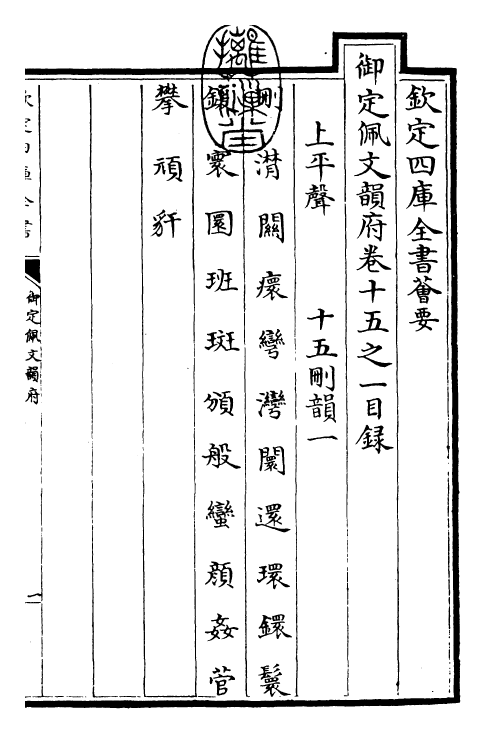 欽定四庫全書薈要
御定佩文韻府卷十五之一目録
上平聲 十五刪韻一
刪潸關癏彎灣闤還環鐶鬟
鍰寰圜班斑頒般蠻顔姦菅
攀頑豻
欽定四庫全書
御定佩文韻府
一